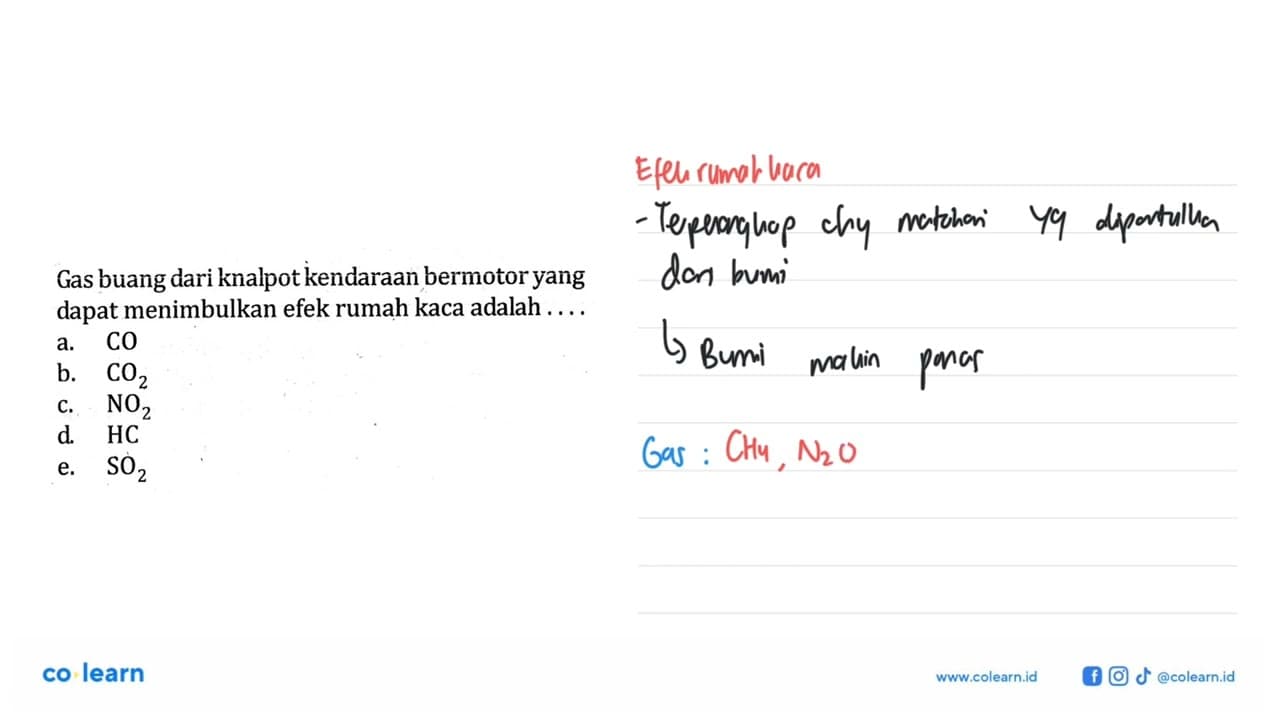 Gas buang dari knalpot kendaraan bermotor yang
dapat menimbulkan efek rumah kaca adalah . . . .
a. CO
b. CO₂
c. NO₂
d. HC
e. SO₂
Efek rumah kaca
- Terperangkap chy matahari yg dipantulkan
dari bumi
↳ Bumi makin panas
Gas : CH₄, N₂O
co learn
www.colearn.id
@colearn.id